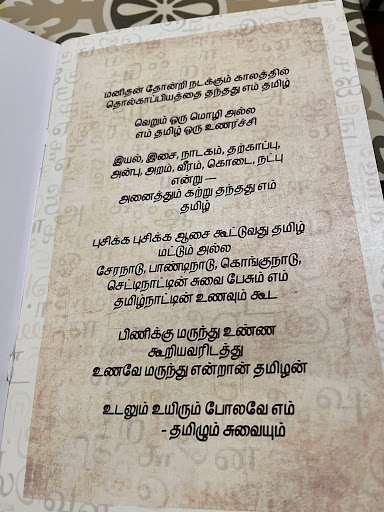 மனிதன் தோன்றி நடக்கும் காலத்தில்
தொல்காப்பியத்தை தந்தது எம் தமிழ்
வெறும் ஒரு மொழி அல்ல
எம் தமிழ் ஒரு உணர்ச்சி
இயல், இசை, நாடகம், தற்காப்பு,
அன்பு, அறம், வீரம், கொடை, நட்பு
என்று —
அனைத்தும் கற்று தந்தது எம்
தமிழ்
புசிக்க புசிக்க ஆசை கூட்டுவது தமிழ்
மட்டும் அல்ல
சேரநாடு, பாண்டிநாடு, கொங்குநாடு,
செட்டிநாட்டின் சுவை பேசும் எம்
தமிழ்நாட்டின் உணவும் கூட
பிணிக்கு மருந்து உண்ண
கூறியவரிடத்து
உணவே மருந்து என்றான் தமிழன்
உடலும் உயிரும் போலவே எம்
- தமிழும் சுவையும்